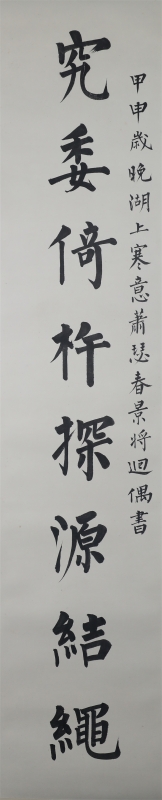 甲申歲晚湖上寒意蕭瑟春景將迴偶書
究委倚杵探源結繩